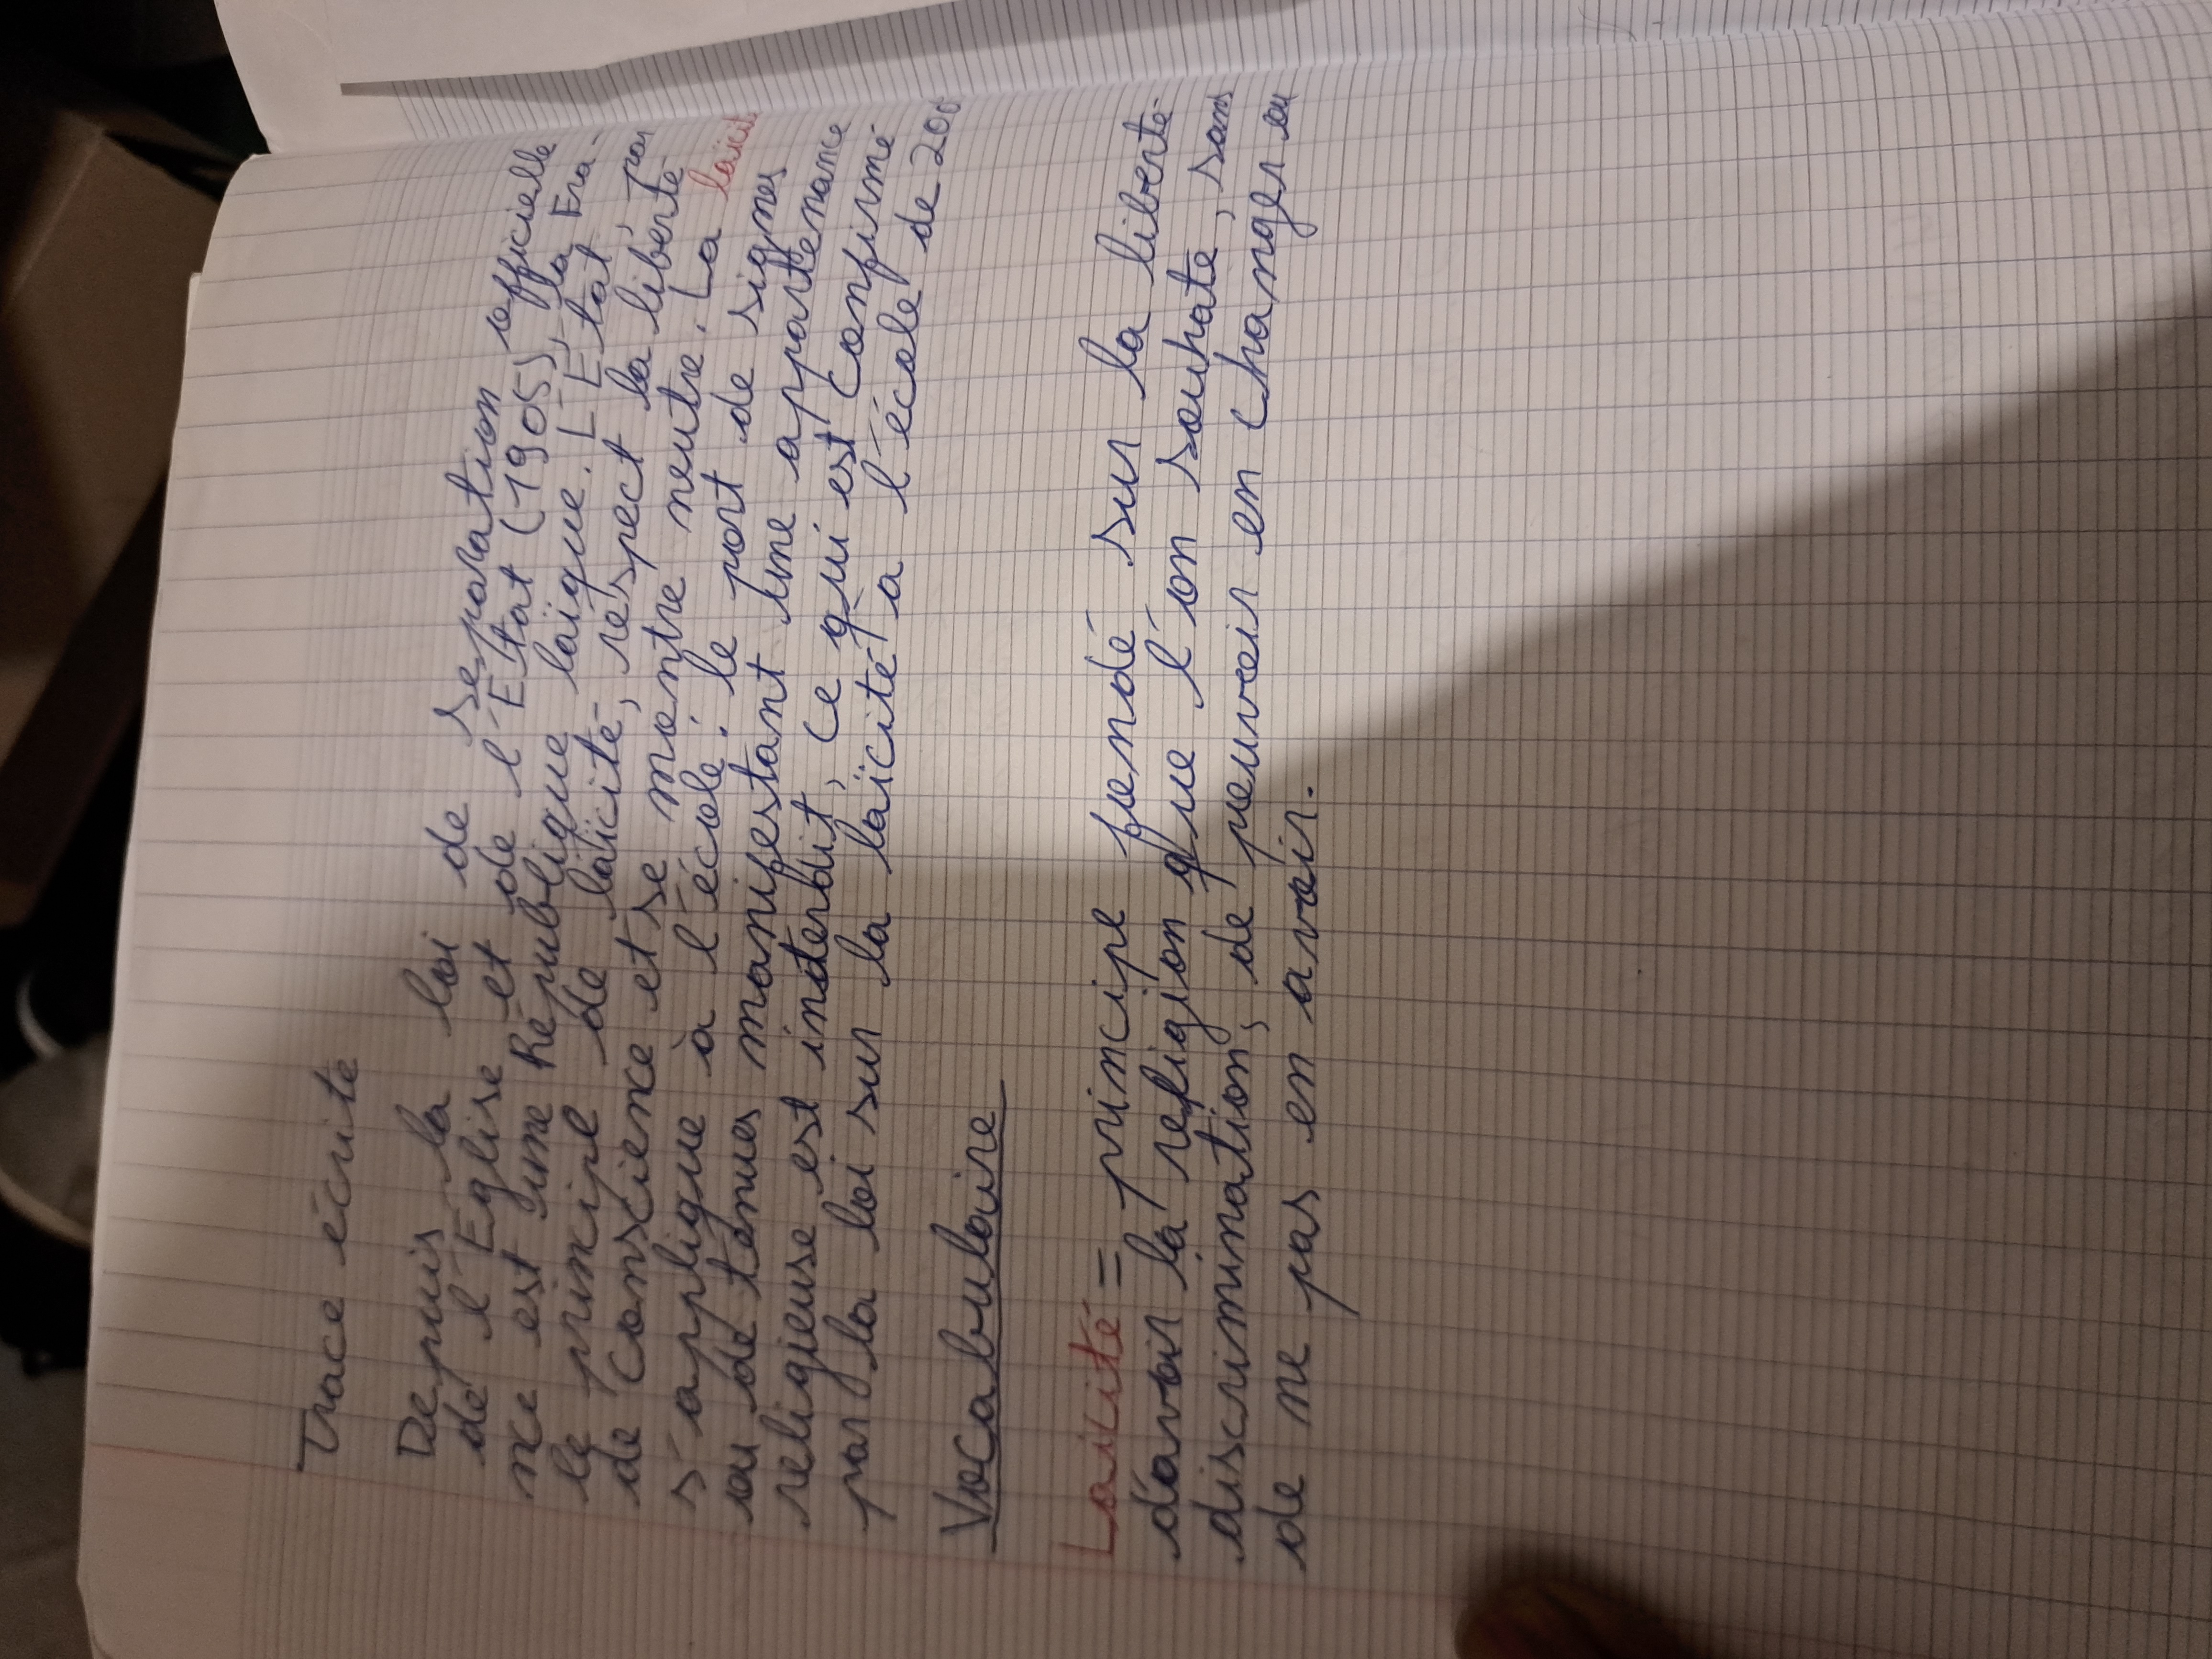 Trace écrite
Depuis la loi de séparation officielle
de l'Eglise et de l'Etat (1905), la Fra-
nce est une République laïque. L'Etat, par
le principe de laïcité, respect la liberté
de conscience et se montre neutre. La laïcit
s'applique à l'école : le port de signes
ou de tenues manifestant une appartenance
religieuse est interdit, ce qui est confirmé
par la loi sur la laïcité a l'école de 200
Vocabulaire
Laicité = principe fondé sur la liberté
d'avoir la religion que l'on souhate, sans
discrimination, de peuvoir en changer ou
de ne pas en avoir.